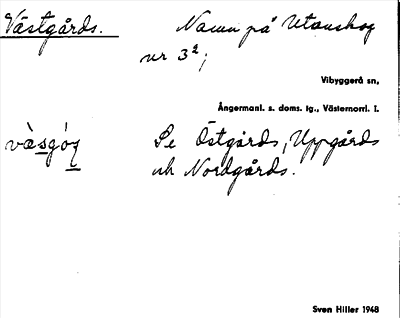 Västgårds. Namn på Utanskog
nr 3²;
Vibyggerå sn,
Ångermanl. s. doms. tg., Västernorrl. l.
vàsgó̱ṣ Se Östgårds, Uppgårds
och Nordgårds.
Sven Hiller 1948